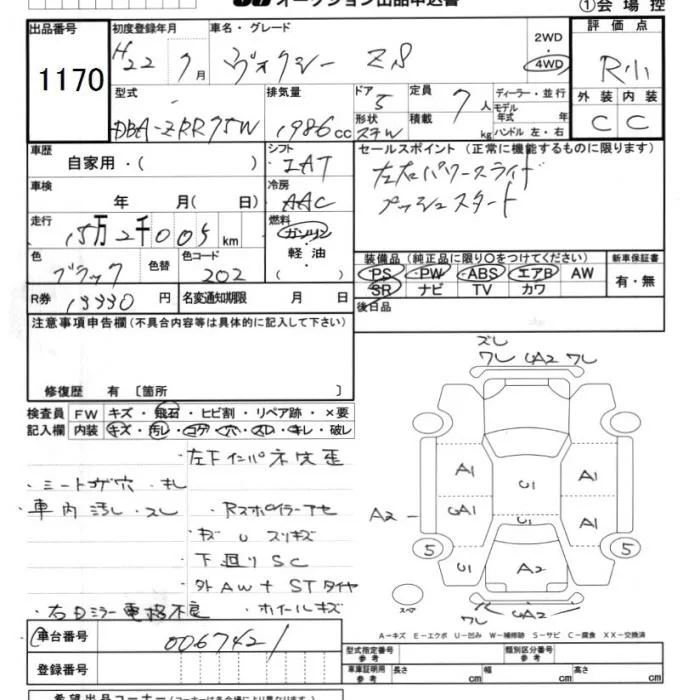 オークション出品申込書
①会場控
出品番号
1170
初度登録年月
H22 7月
車名・グレード
ヴォクシー ZS
2WD
・
4WD
評価点
R小
型式
DBA-ZRR75W
排気量
1986cc
ドア
5
形状
ステW
定員
7人
積載
kg
ディーラー・並行
モデル
年式 年
ハンドル 左・右
外装 内装
C C
車歴
自家用・( )
シフト
IAT
セールスポイント(正常に機能するものに限ります)
左右パワースライド
プッシュスタート
車検
年 月( 日)
冷房
AAC
走行
15万2千005km
燃料
ガソリン
・
軽油
( )
色
ブラック
色替
色コード
202
装備品(純正品に限り○をつけてください)
PS ・PW ・ABS エアB AW
SR ナビ TV カワ
新車保証書
有・無
R券
13330円
名変通知期限 月 日
後日品
注意事項申告欄(不具合内容等は具体的に記入して下さい)
修復歴 有 〔箇所 〕
検査員 FW キズ・飛石・ヒビ割・リペア跡・×要
記入欄 内装 キズ・汚レ・コゲ・穴・スレ・キレ・破レ
・左下インパネ穴歪
・シートコゲ穴・キレ
・車内汚レ・スレ
・Rスポイラーアセ
キズ U スリキズ
・下廻りSC
・外AW+STタイヤ
・右Dミラー電格不良
・ホイールキズ
ズレ
ワレ UA2 ワレ
A1
U1
A1
A2
UA1
U1
A1
5
5
U1
A2
スペア
ワレ UA2
A−キズ E−エクボ U−凹み W−補修跡 S−サビ C−腐食 XX−交換済
車台番号
0067421
登録番号
型式指定番号
参考
類別区分番号
参考
車庫証明用
参考
長さ cm
幅 cm
高さ cm
希望出品コーナー